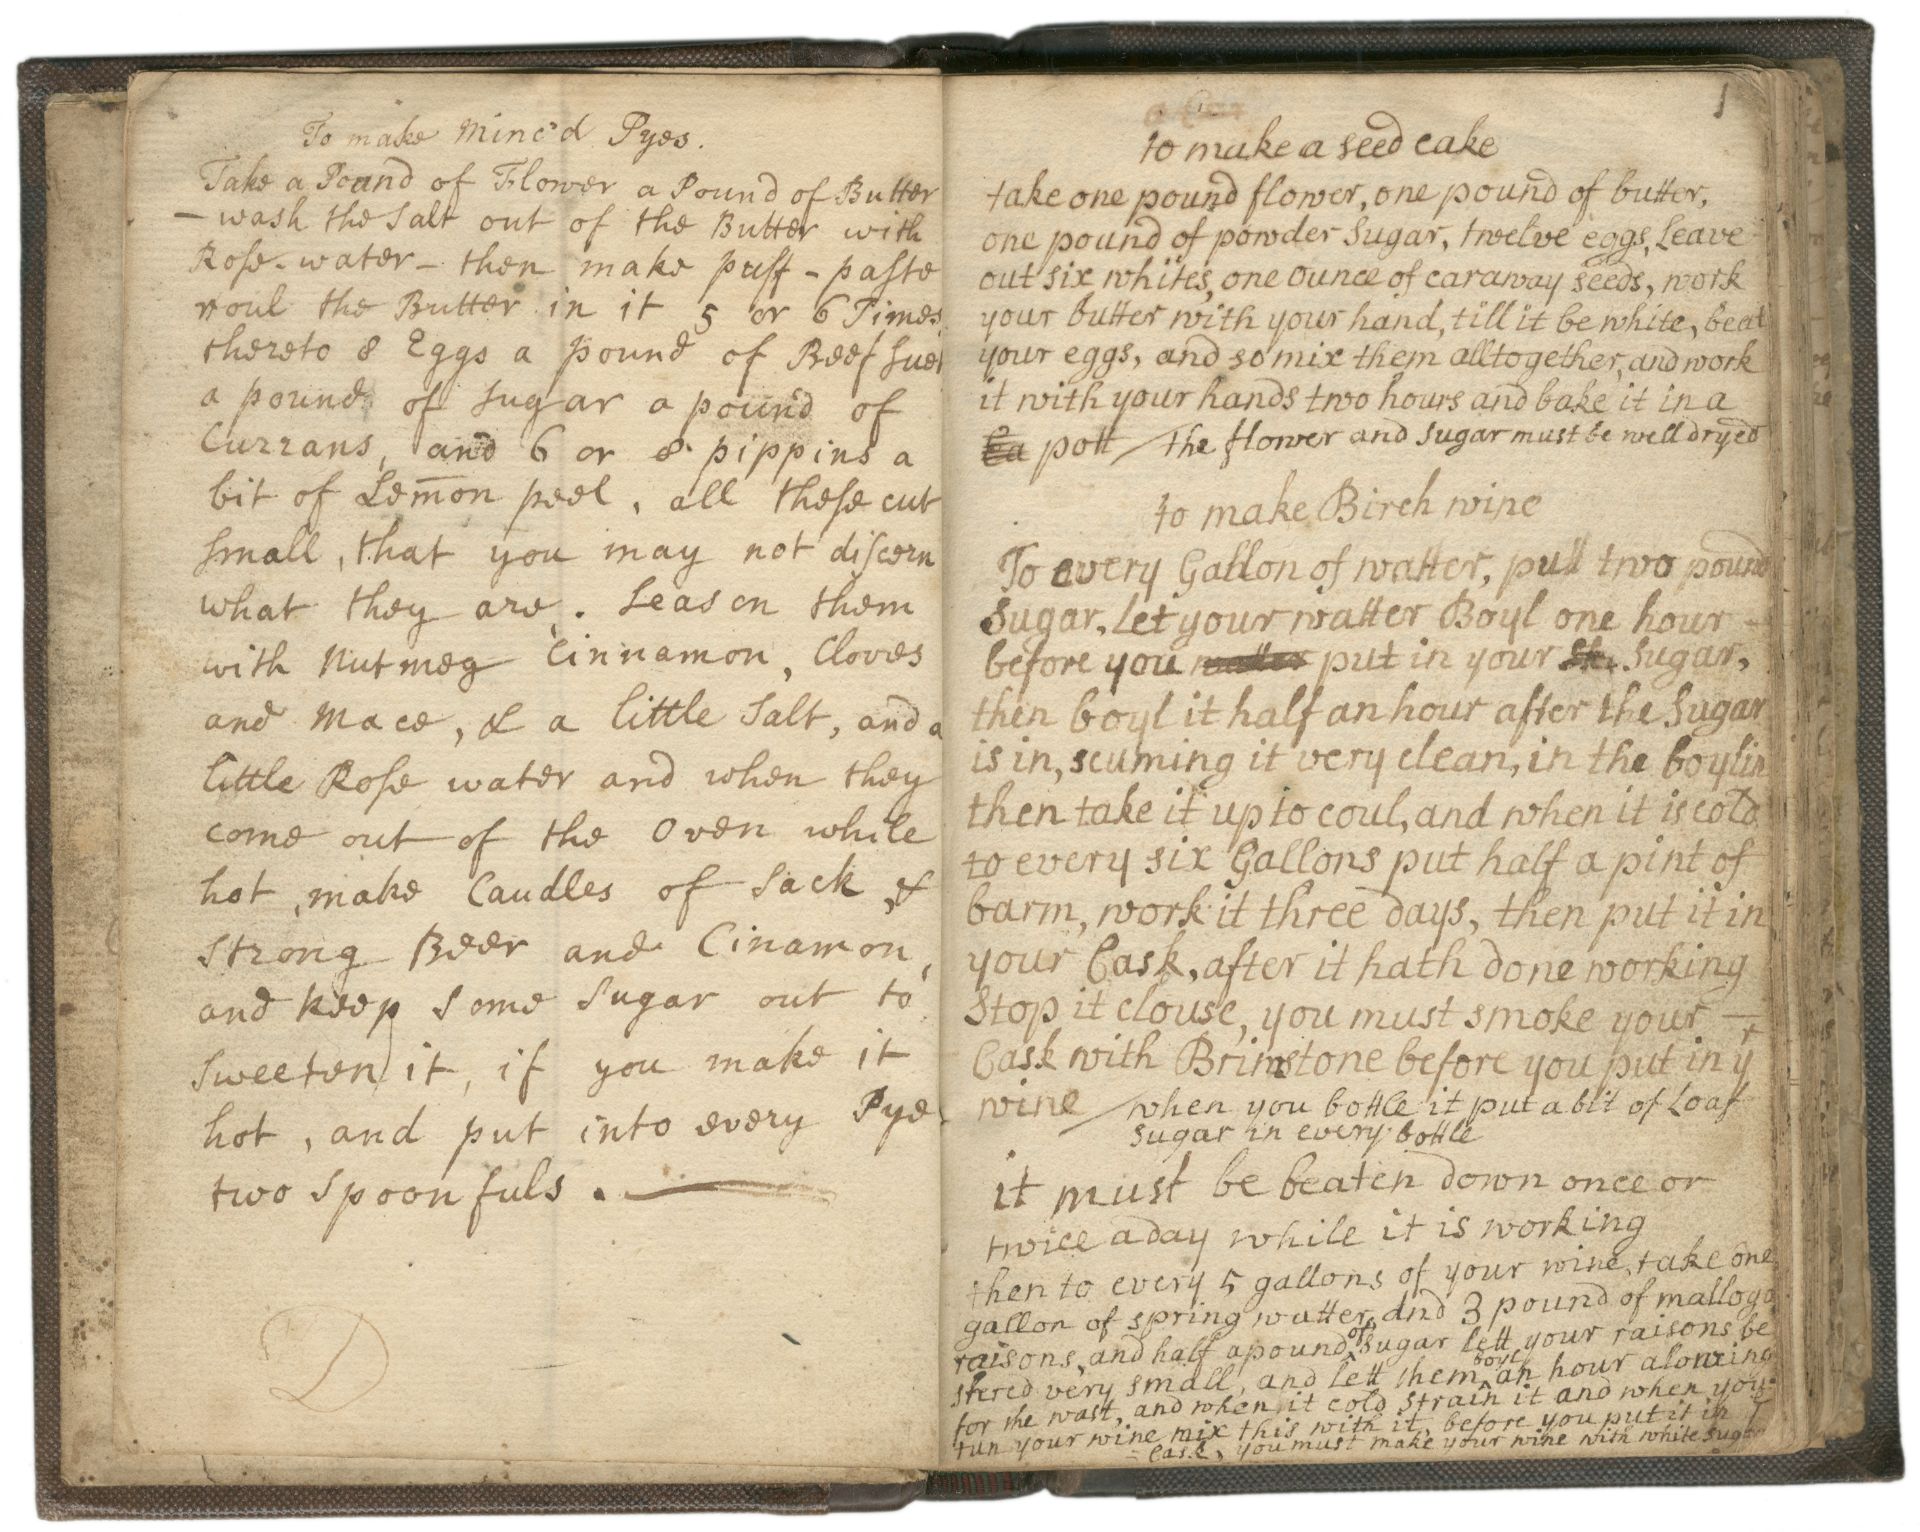 To make Minc'd Pyes.
Take a Pound of Flower a Pound of Butter
- wash the Salt out of the Butter with
Rose-water - then make puff-paste
roul the Butter in it 5 or 6 Times
thereto 8 Eggs a pound of Beef Suet
a pound of Sugar a pound of
Currans, and 6 or 8 pippins a
bit of Lem̄on peel, all these cut
small, that you may not discern
what they are. Season them
with Nutmeg Cinnamon, Cloves
and Mace, & a little Salt, and a
little Rose water and when they
come out of the Oven while
hot, make Caudles of Sack, &
strong Beer and Cinamon,
and keep some Sugar out to
sweeten it, if you make it
hot, and put into every Pye
two spoonfuls.
D
1
to make a seed cake
take one pound flower, one pound of butter,
one pound of powder Sugar, twelve eggs, Leave
out six whites, one ounce of caraway seeds, work
your butter with your hand, till it be white, beat
your eggs, and so mix them alltogether, and work
it with your hands two hours and bake it in a
pott / the flower and Sugar must be well dryed
to make Birch wine
To every Gallon of watter, putt two pound
Sugar, Let your watter Boyl one hour -
before you watter put in your Sugar,
then boyl it half an hour after the Sugar
is in, scuming it very clean, in the boylin
then take it up to coul, and when it is cold
to every six Gallons put half a pint of
barm, work it three days, then put it in
your Cask, after it hath done working
Stop it clouse, you must smoke your -
Cask with Brimstone before you put in yr
wine / when you bottle it put a bit of Loaf
Sugar in every bottle
it must be beaten down once or
twice a day while it is working
then to every 5 gallons of your wine, take one
gallon of spring watter, And 3 pound of malloga
raisons, and half a pound of Sugar lett your raisons be
stered very small, and lett them boyl an hour alowing
for the wast, and when it cold strain it and when you
tun your wine mix this with it, before you put it in
- Cask, you must make your wine with white Sugar